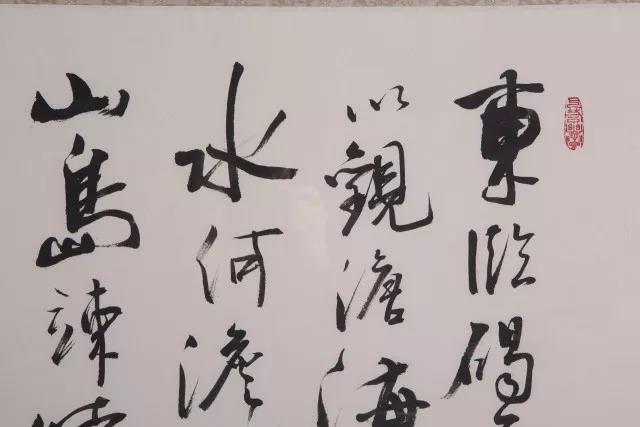 東臨碣
以觀滄海
水何澹
山島竦